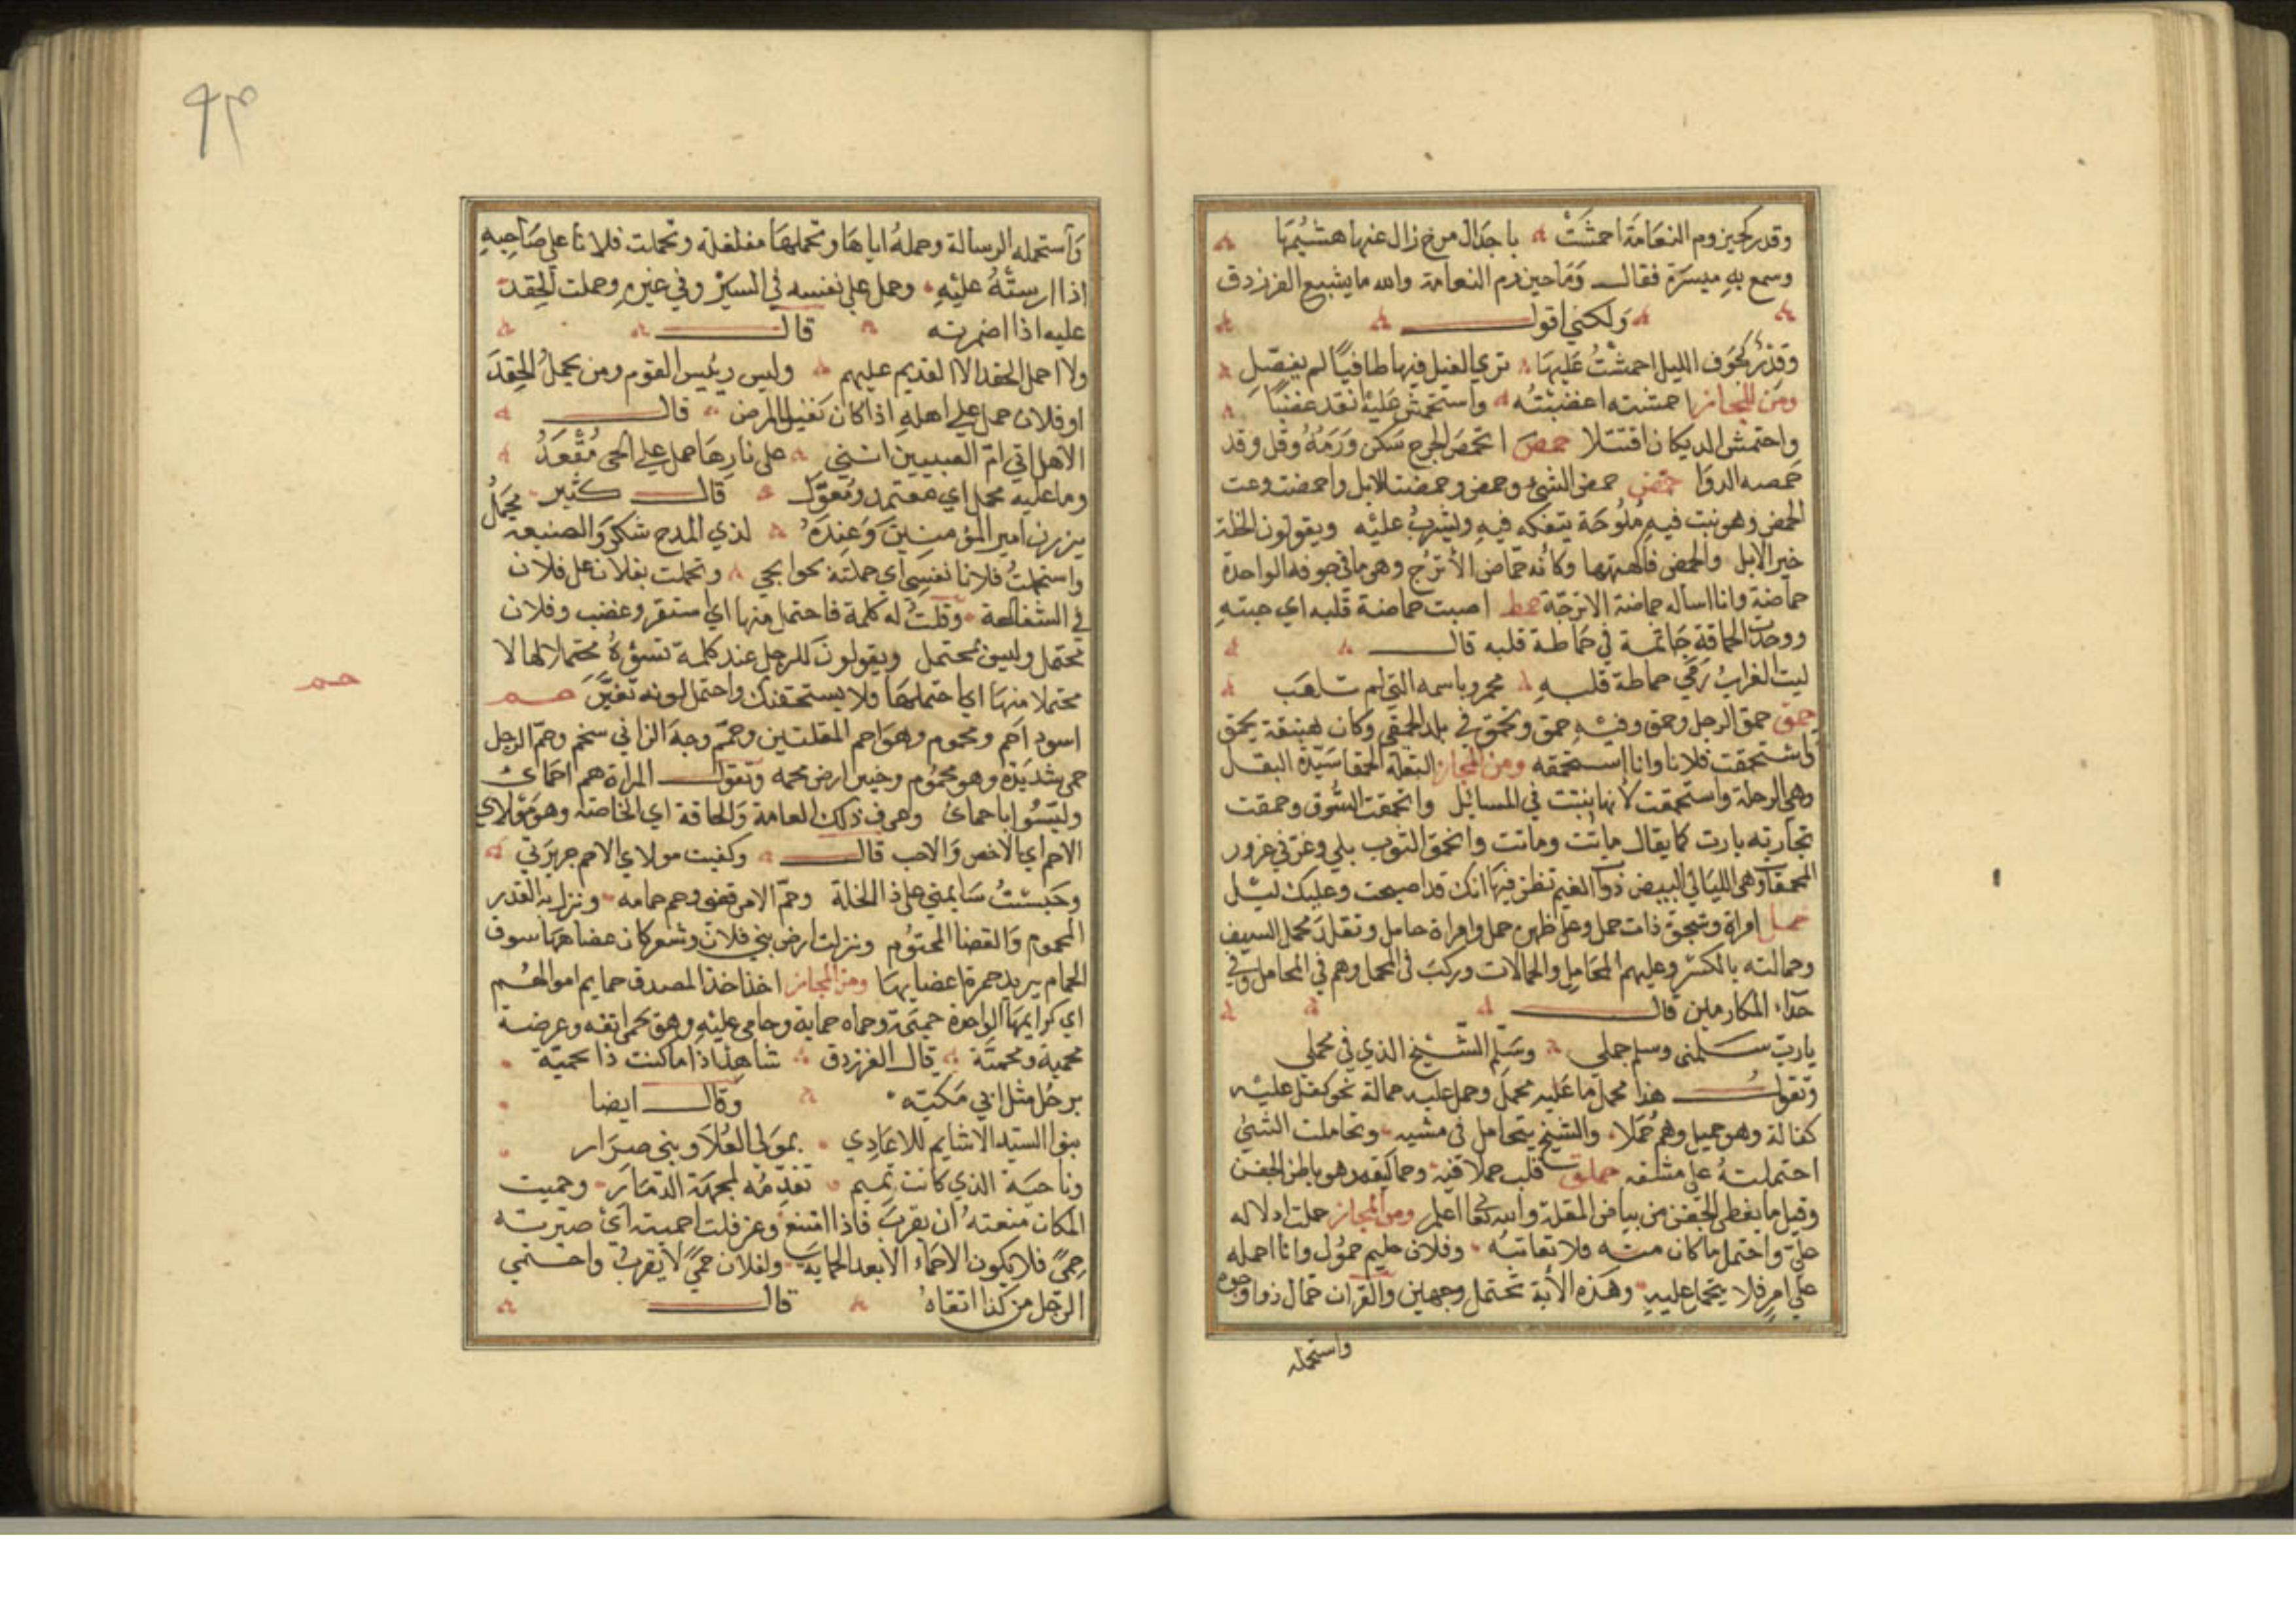 وقدر كحيزوم النعامة احمشت باجذال مرخ زال عنها هشيمها
وسمع به ميسرة فقال وما حيزوم النعامة والله ما يشبع الفرزدق
ولكني اقول
وقدر كجوف الليل احمشت عليها تري الفيل فيها طافيا لم يفصل
ومن المجاز احمشته اغضبته واستحمش عليه اتقد غضبا
واحتمش الديكان اقتتلا حمص انحمص الجرح سكن ورمه وقل وقد
حمصه الدوا حمض حمض الشئ وحمض وحمضت الابل واحمضت وعت
الحمض وهو نبت فيه ملوحة يتفكه فيه ويشرب عليه ويقولون الخلة
خبز الابل والحمض فاكهتها وكانه حماض الأترج وهو ما في جوفه الواحدة
حماضة وانا اساله حماضة الاترجة حمط اصبت حماضة قلبه اي حبته
ووجدت الحماقة جاثمة في حماطة قلبه قال
ليت الغراب رمي حماطة قلبه عمرو باسهمه التي لم تلغب
حمق حمق الرجل وحمق وفيه حمق وتحمق في بلد الحمقي وكان هبنقة يحمق
واستحمقت فلانا وانا استحمقه ومن المجاز البقلة الحمقا سيدة البقل
وهي الرجلة واستحمقت لأنها ينبت في المسائيل وانحمقت السوق وحمقت
تجارته بارت كما يقال ماتت وماتت وانحمق الثوب بلي وغرني غرور
المحمقات وهي الليالي البيض ذوات الغيم تظن فيها انك قد اصبحت وعليك ليل
حمل امراة وشجرة ذات حمل وعلي ظهره حمل وامراة حامل وتقلد محمل السيف
وحمالته بالكسر وعليهم المحامل والحمالات وركب في المحمل وهم في المحامل وفي
حداء المكارمين قال
يارب سلمني وسلم جملي وسلم الشيخ الذي في محملي
وتقول هذا محمل ما عليه محمل وحمل عليه حمالة نحو كفل عليه
كفالة وهو حميل وهم حملا والشيخ يتحامل في مشيه وتحاملت الشئ
احتملته علي مشقة حملق قلب حملاقيه وحماليقه وهو باطن الجفن
وقيل ما يغطي الجفن من بياض المقلة والله تعالى اعلم ومن المجاز حملت ادلاله
علي واحتمل ما كان منه فلا تعاتبه وفلان حليم حمول وانا احمله
علي امر فلا يتحمل عليه وهذه الأية تحتمل وجهين والقران حمال ذو وجوه
واستحمله
واستحمله الرسالة وحمله اياها وتحملها مغلغلة وتحملت فلانا علي صاحبه
اذا ارسلته عليه وحمل علي نفسه في السير وفي غيره وحملت الحقد
عليه اذا اضمرته قال
ولا احمل الحقد الا القديم عليهم وليس رئيس القوم ومن يحمل الحقد
او فلان حمل علي اهله اذا كان ثقيل المرض قال
الاهل اتي ام الصبيين انني علي نارها حمل علي الحي مقعد
وما عليه محمل اي معتمد ومعول قال كثير محمل
يزرن امير المؤمنين وعنده لذي المدح شكر والصنيعة
واستحملت فلانا نفسي اي حملته حوايجي وتحملت بفلان علي فلان
في الشفاعة وقلت له كلمة فاحتمل منها اي استنفر وغضب وفلان
محتمل وليس بمحتمل ويقولون للرجل عند كلمة تسؤه محتملا لها لا
محتملا منها اي احتملها ولا يستخفنك واحتمل لونه تغير حمم
حمم
اسود احم ويحموم وهو احم المقلتين وحمم وجه الزاني سخم وحم الرجل
حمي شديدة وهو محموم وخيبر ارض محمة وتقول المراة هم احماي
وليسوا باحماي وعرف ذلك العامة والحاقة اي الخاصة وهو مولاي
الاحم اي الاخص والاحب قال وكفيت مولاي الاحم جريرتي
وحبست سايمتي علي ذا الخلة وحم الامر قضي وحم حمامه ونزل به القدر
المحموم والقضا المحتوم ونزلت ارض بني فلان وشعر كان عضاهها سوق
الحمام يريد حمرة اعضايها ومن المجاز اخذ اخذ المصدق حمايم اموالهم
اي كرايمها الواحدة حميمة وحماه حماية وحامي عليه وهو يحمي انفه وعرضه
محمية ومحمية قال الفرزدق شاهد اذا ما كنت ذا محمية
برجل مثل ابي مكيه وقال ايضا
بنوا السيد الاشايم للاعادي بموالي العلا وبني ضرار
وناحية الذي كانت تميم تقدمه لمحمية الذمار وحميت
المكان منعته ان يقرب فاذا امتنع وعز قلت احميته اي صيرته
حمي فلا يكون الاحماء الا بعد الحماية ولفلان حمي لا يقرب واحتمي
الرجل من كذا اتقاه قال
٩٣